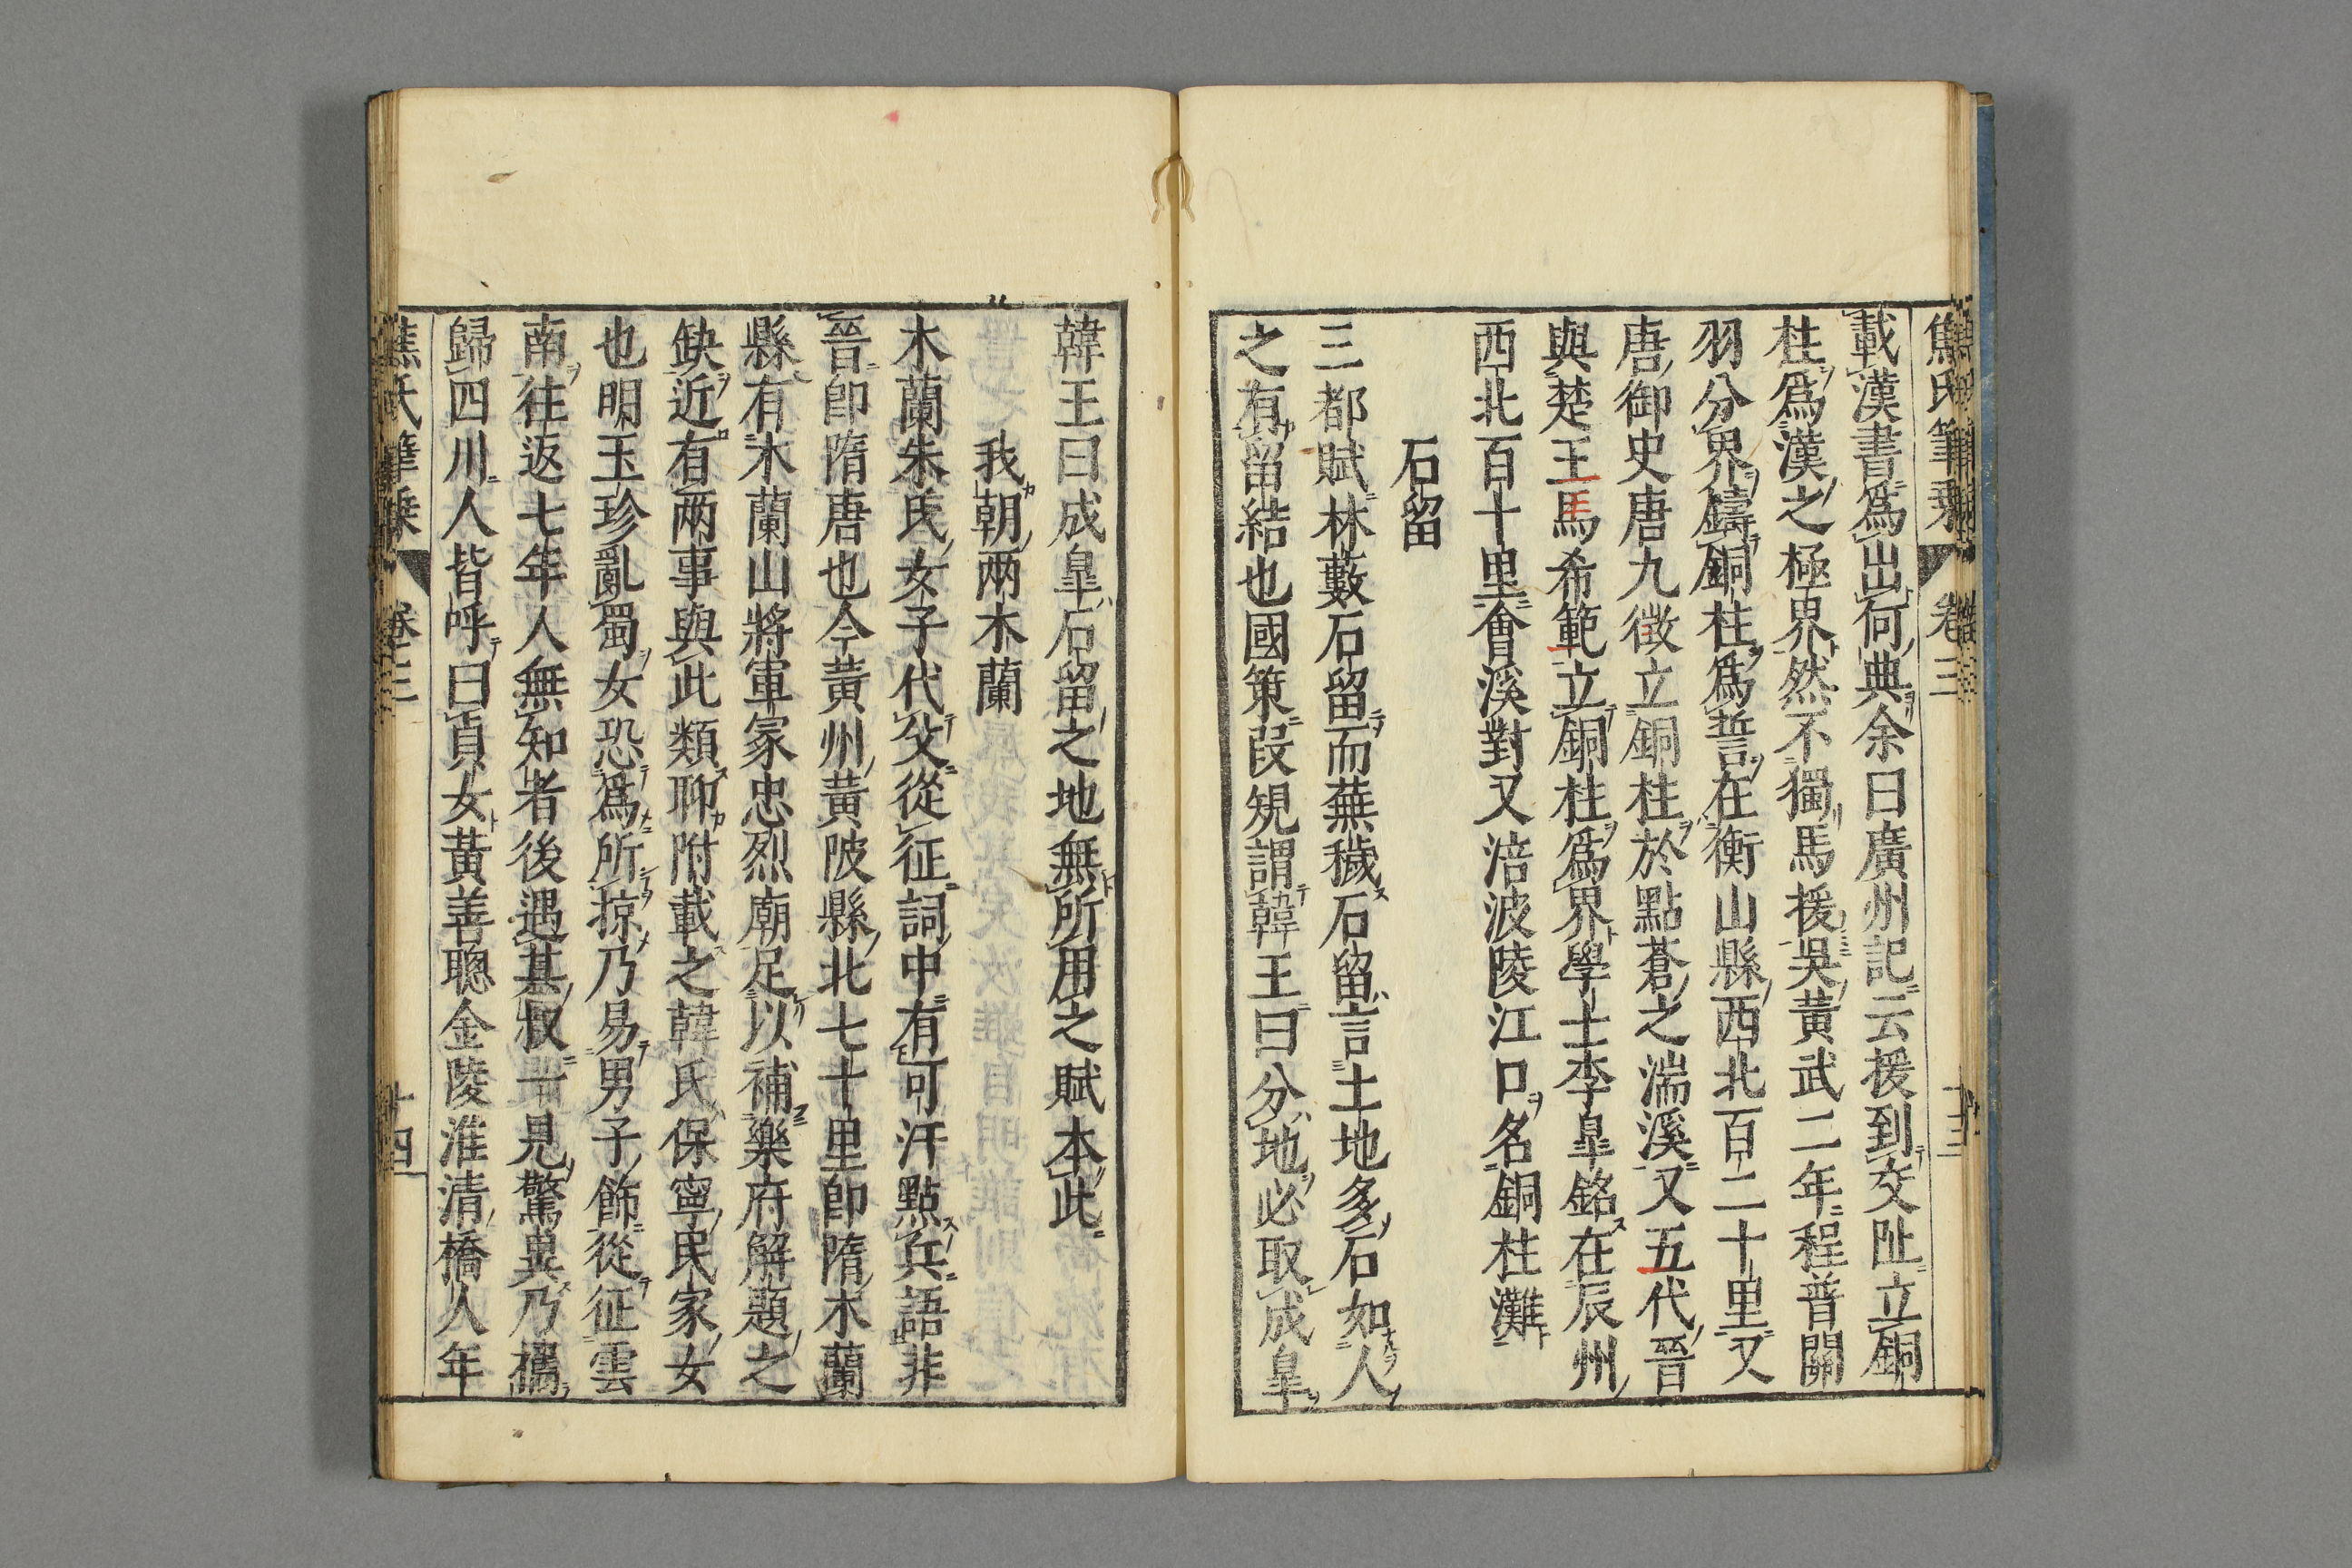 焦氏筆乗 卷三
載漢書爲出何典余曰廣州記云援到交阯立銅
柱爲漢之極界然不獨馬援吳黃武二年程普關
羽分界鑄銅柱爲誓在衡山縣西北百二十里又
唐御史唐九徵立銅柱於點蒼之湍溪又五代晉
與楚王馬希範立銅柱爲界學士李皐銘在辰州
西北百十里會溪對又涪波陵江口名銅柱灘
石留
三都賦林藪石留而蕪穢石留言土地多石如人
之有留結也國策段規謂韓王曰分地必取成皐
韓王曰成皐石留之地無所用之賦本此
我朝兩木蘭
木蘭朱氏女子代父從征詞中有可汗點兵語非
晉卽隋唐也今黃州黃陂縣北七十里卽隋木蘭
縣有木蘭山將軍冢忠烈廟足以補樂府解題之
缺近有兩事與此類聊附載之韓氏保寧民家女
也明玉珍亂蜀女恐爲所掠乃易男子飾從征雲
南往返七年人無知者後遇其叔一見驚異乃攜
歸四川人皆呼曰貞女黃善聰金陵淮清橋人年
焦氏筆乗 卷三 十四